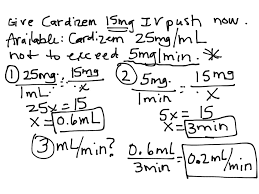 Give Cardizem 15mg IV push now.
Available: Cardizem 25mg/mL
not to exceed 5mg/min. *
① 25mg/1mL = 15mg/x ② 5mg/1min = 15mg/x
25x = 15 5x = 15
x = 0.6mL x = 3min
③ mL/min? 0.6mL/3min = 0.2mL/min